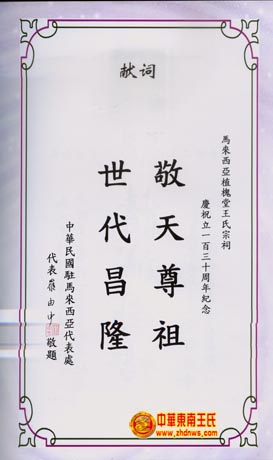 献词
馬來西亞植槐堂王氏宗祠
慶祝立一百三十周年紀念
敬天尊祖
世代昌隆
中華民國駐馬來西亞代表處
代表
敬題
中華東南王氏
www.zhdnws.com